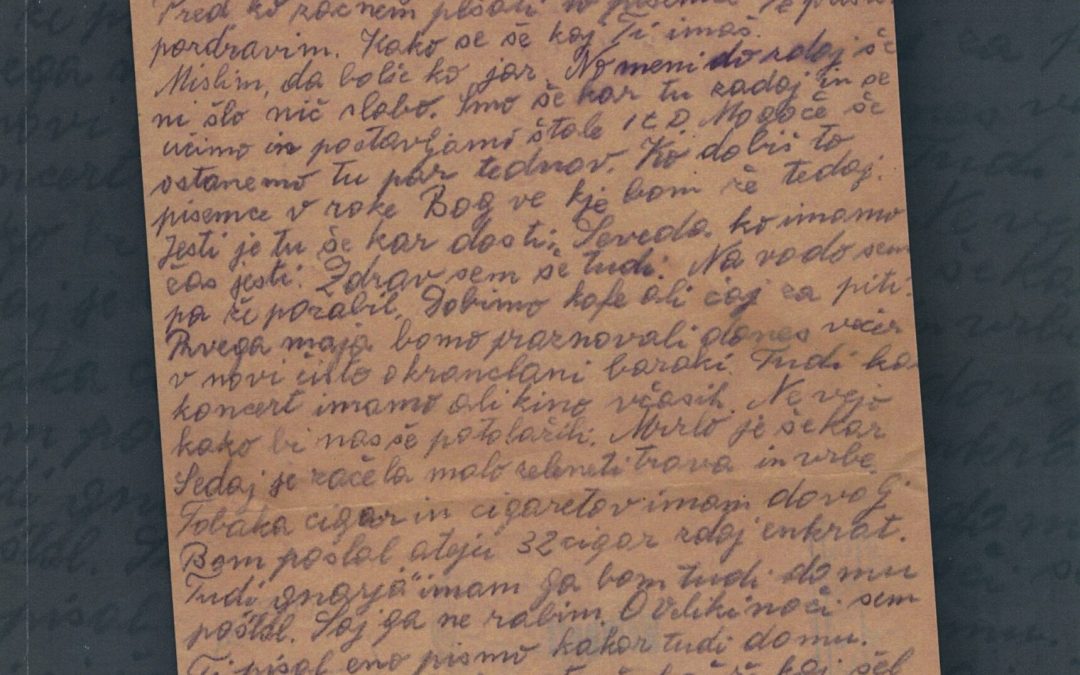 Pred ko začnem pisati to pisemce Te
pozdravim. Kako se še kaj Ti imaš.
Mislim, da bolje ko jaz. No meni do zdaj še
ni šlo nič slabo. Smo še kar tu zadaj in se
učimo in postavljamo štale itd. Mogoče še
ostanemo tu pár tednov. Ko dobiš to
pisemce v roke Bog ve kje bom že tedaj.
Jesti je tu še kar dosti. Seveda ko imamo
čas jesti. Zdrav sem še tudi. Na vodo sem
pa že pozabil. Dobimo kofe ali čaj za piti.
Prvega maja bomo praznovali danes večer
v novi čisto okranclani baraki. Tudi
koncert imamo ali kino včasih. Ne vejo
kako bi nas še potolažili. Mrzlo je še kar
Sedaj je začela malo zeleneti trava in vrbe.
Tobaka cigar in cigaretov imam dovolj
Bom poslal ateju 32 cigar zdaj enkrat.
Tudi "gnarja" imam ga bom tudi domu
poslal. Saj ga ne rabim. O Veliki noči sem
Ti pisal eno pismo kakor tudi domu.